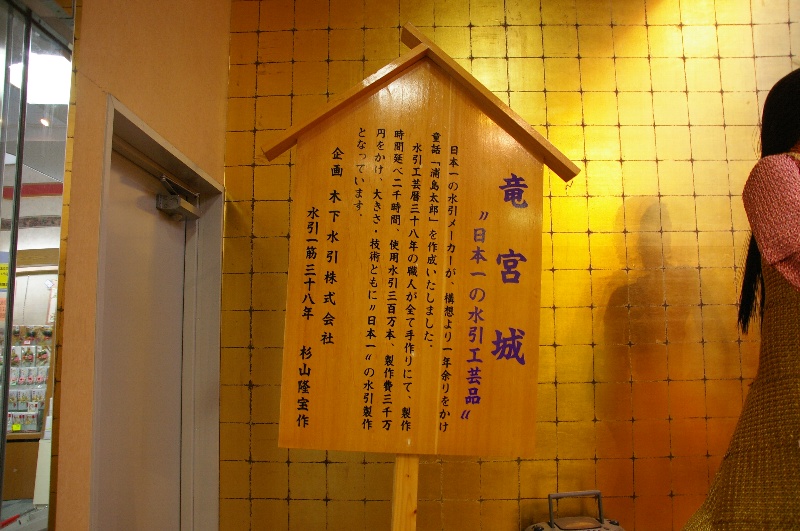 竜宮城
〃日本一の水引工芸品〃
日本一の水引メーカーが、構想より一年余りをかけ
童話「浦島太郎」を作成いたしました。
水引工芸暦三十八年の職人が全て手作りにて、製作
時間延べ二千時間、使用水引三百万本、製作費三千万
円をかけ、大きさ・技術ともに〃日本一〃の水引製作
となっています。
企画 木下水引株式会社
水引一筋三十八年 杉山隆宝作